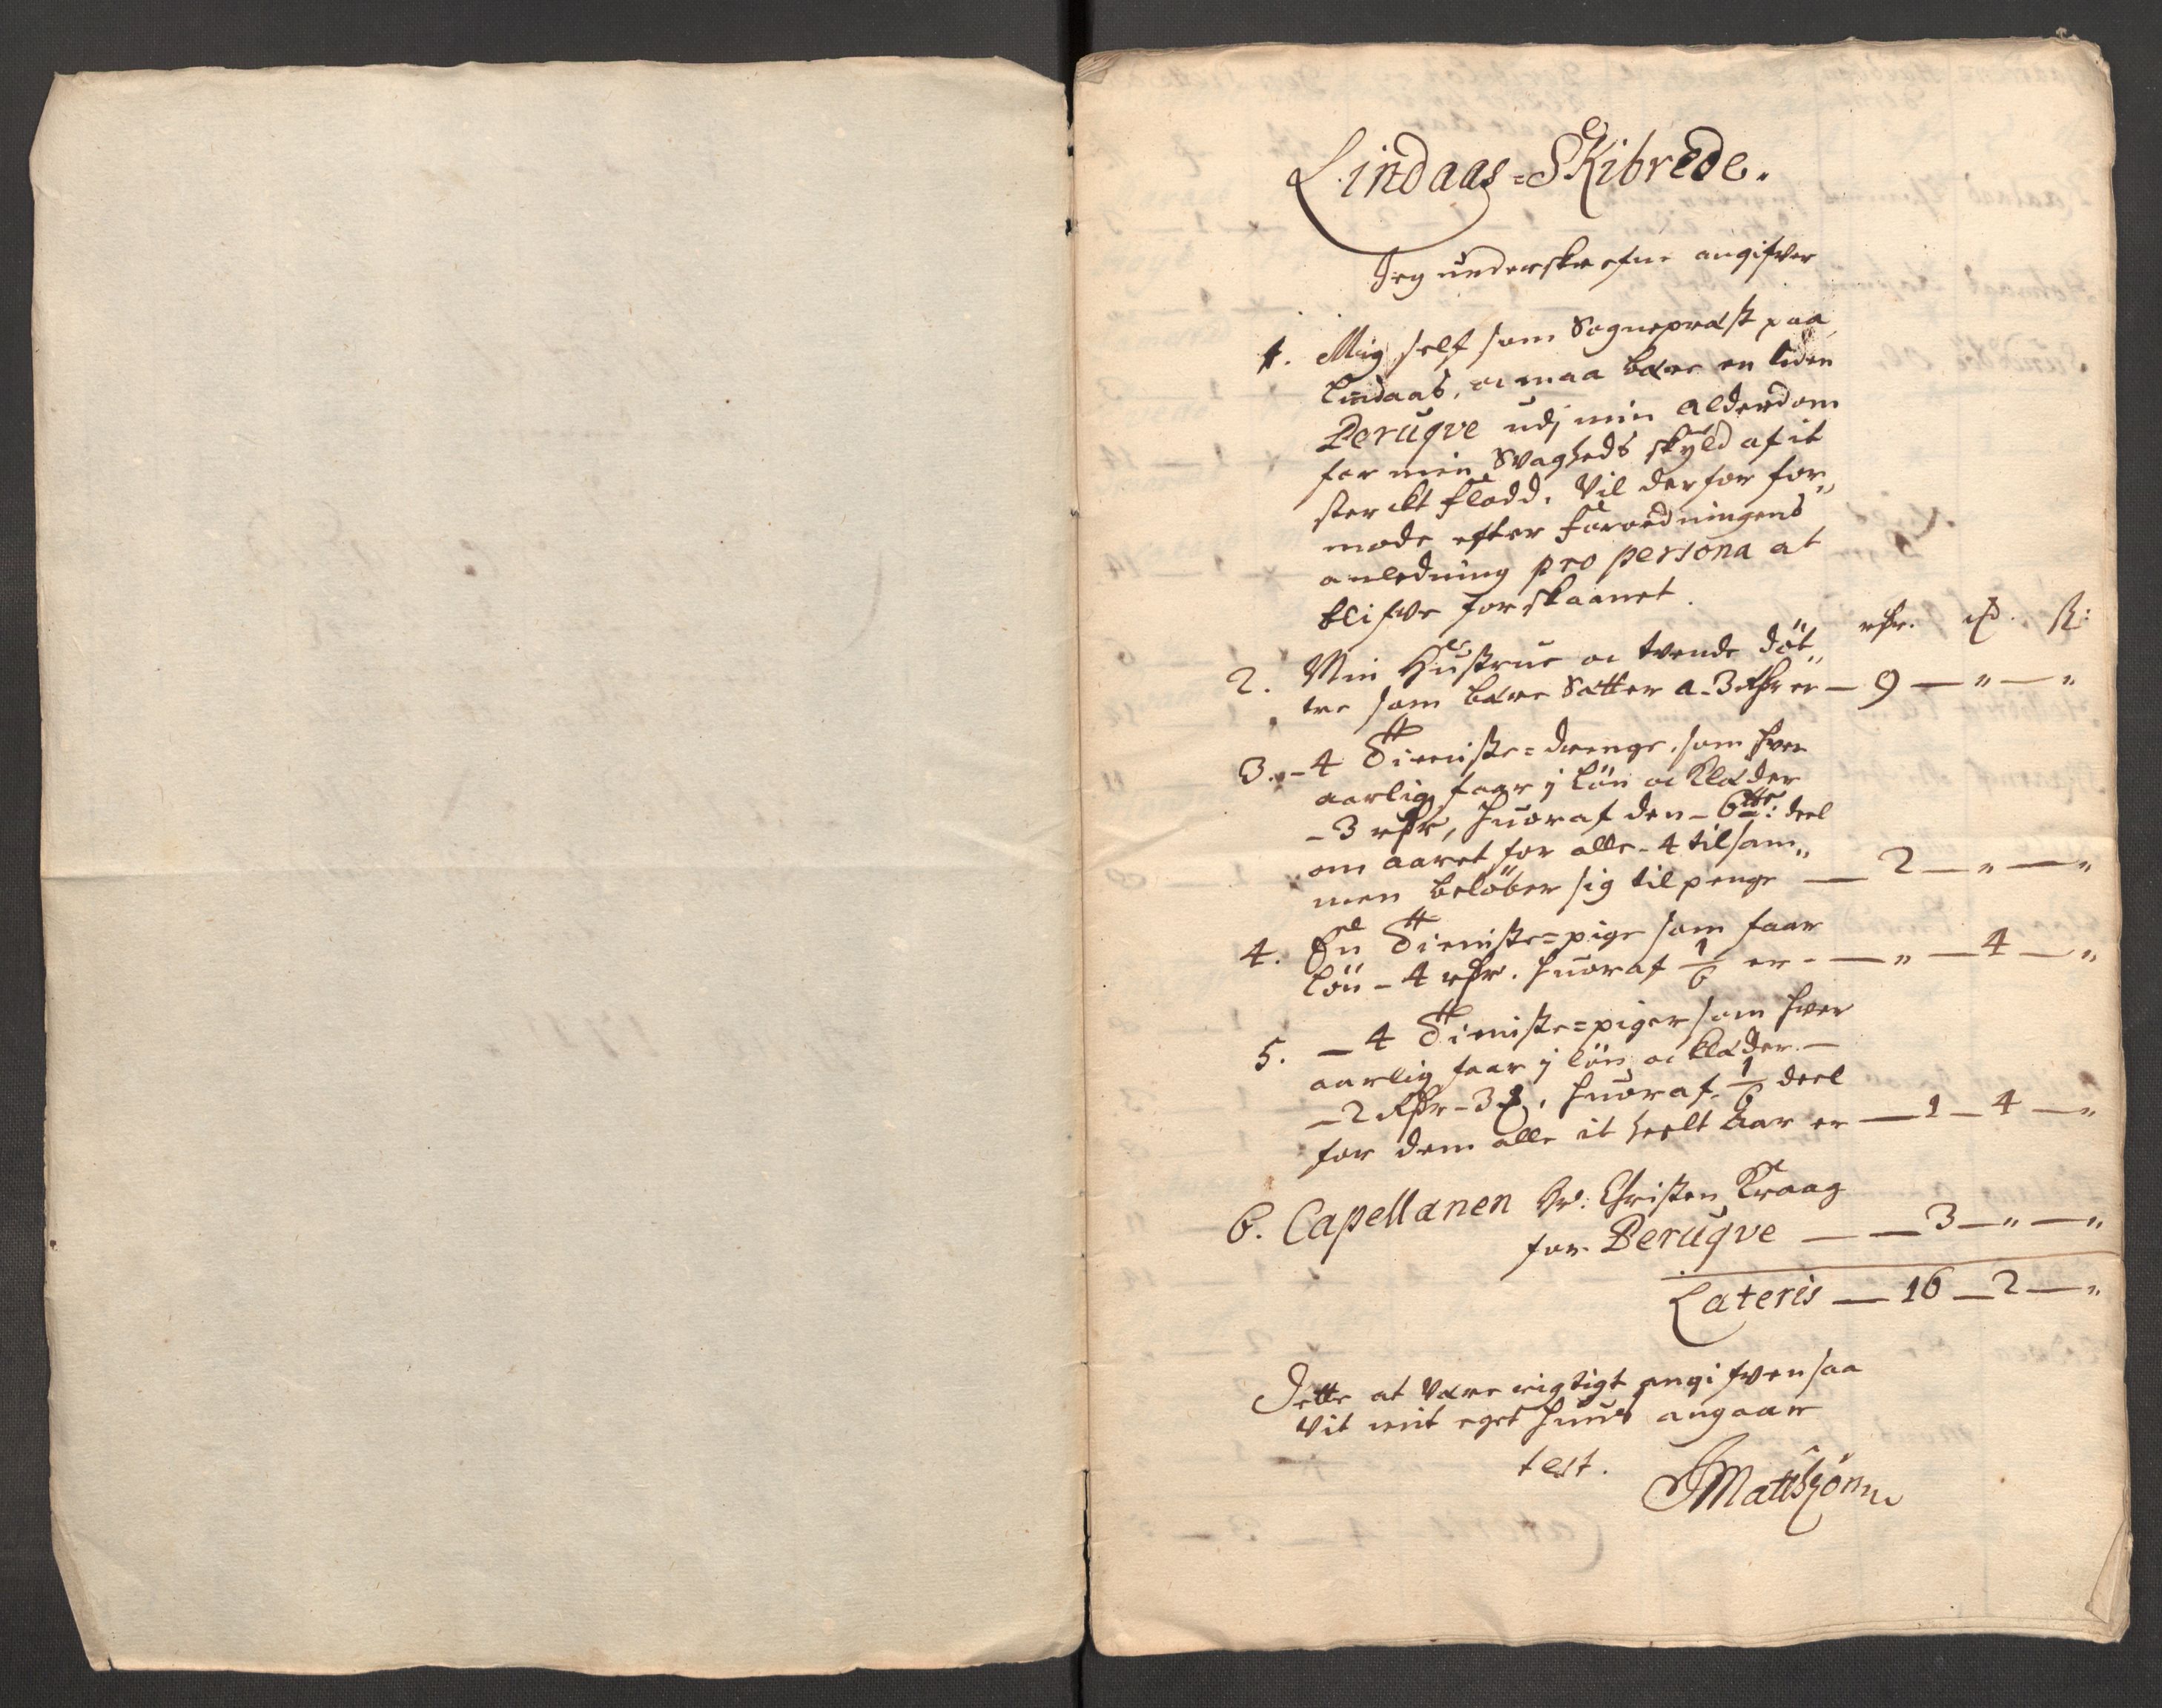 Lindaas-Skibrede.
Jeg underskrefne angifver
1. Mig self som Sognepræst paa
Lindaas, oc maa bære en liden
Peruqve udj min Alderdom
for min Svagheds skyld af it
sterckt flodd. Vil derfor for„
mode efter Forordningens
anledning pro persona at
blifve forskaanet.
rdr. ß:
2. Min Hustrue oc tvende döt„
tre som bære Setter a 3 Rdr er — 9 — „ — „
3. – 4 Tieniste=drenge, som hver
aarlig faar j lön oc Klæder
– 3 rdr, huoraf den – 6te: deel
om aaret for alle – 4 tilsam„
men beløber sig til penge — 2 — „ — „
4. En Tieniste=pige som faar
lön – 4 rdr. huoraf 1/6 er – — „ — 4 — „
5. — 4 Tieniste=piger som hver
aarlig faar j lön oc klæder –
– 2 Rdr – 3 , huoraf 1/6 deel
for dem alle it heelt Aar er — 1 — 4 — „
6. Capellanen Hr. Christen Kraag
for Peruqve — — 3 — „ — „
Lateris — 16 — 2 — „
Dette at være rigtigt angifven saa
vit mit eget huus angaar
test.